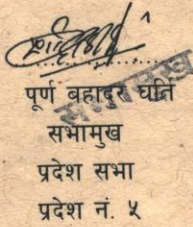 पूर्ण बहादुर घर्ति
सभामुख
प्रदेश सभा
प्रदेश नं. ५